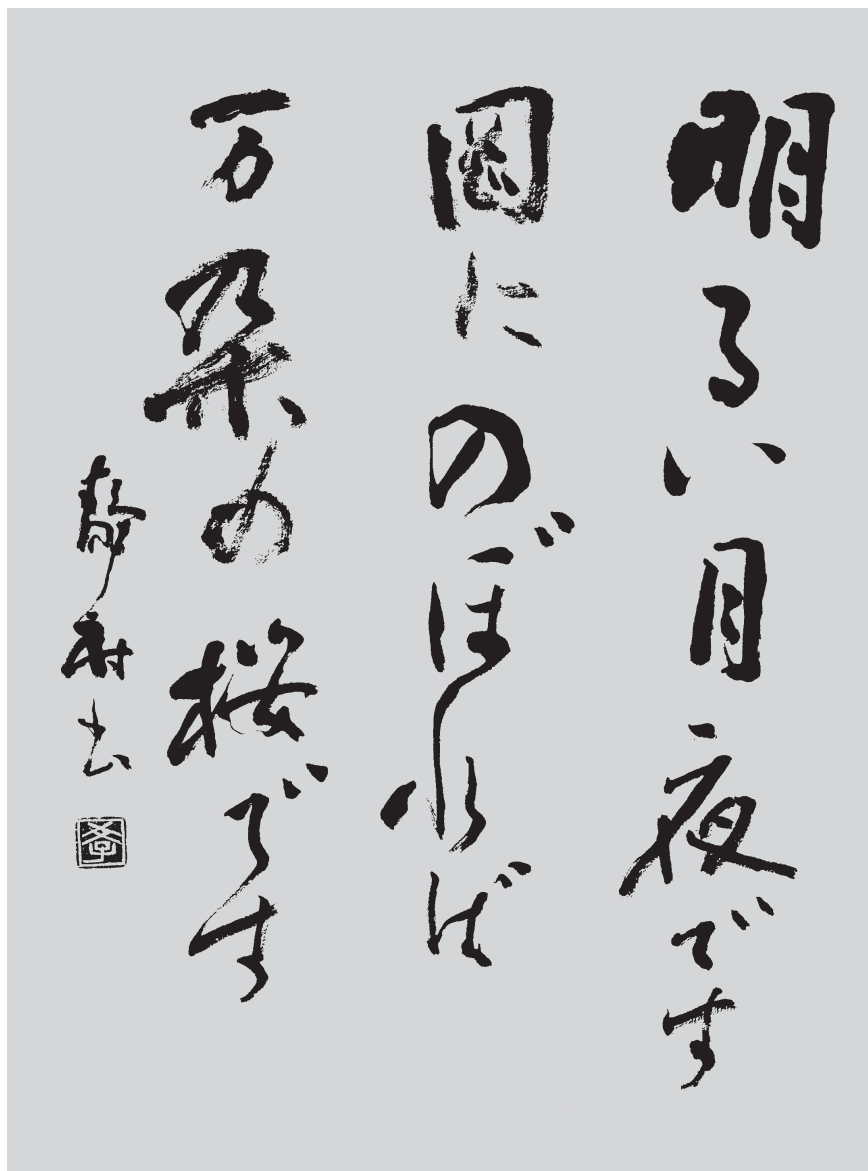 明るい月夜です
岡にのぼれば
万朶の桜です
書